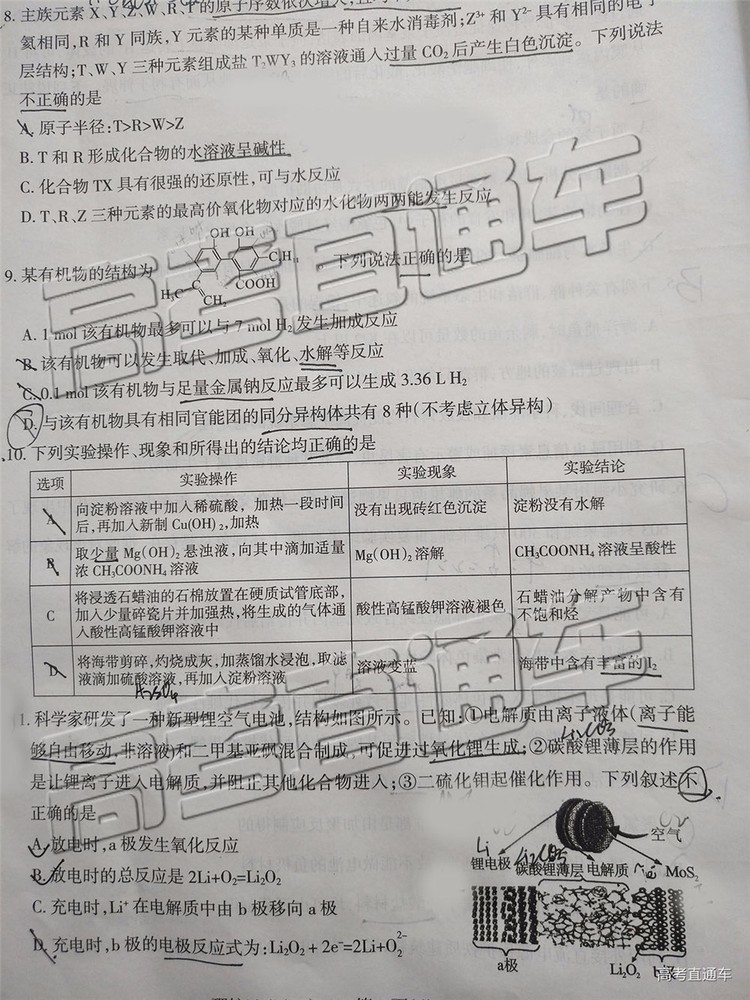 8. 主族元素 X、Y、Z、W、R、T 的原子序数依次增大,且
氦相同,R 和 Y 同族,Y 元素的某种单质是一种自来水消毒剂;Z³⁺ 和 Y²⁻ 具有相同的电子
层结构;T、W、Y 三种元素组成盐 T₂WY₃ 的溶液通入过量 CO₂ 后产生白色沉淀。下列说法
不正确的是
A. 原子半径:T>R>W>Z
B. T 和 R 形成化合物的水溶液呈碱性
C. 化合物 TX 具有很强的还原性,可与水反应
D. T、R、Z 三种元素的最高价氧化物对应的水化物两两能发生反应
OH OH
9. 某有机物的结构为
C₅H₁₁
下列说法正确的是
H₃C
CH₂
COOH
A. 1 mol 该有机物最多可以与 7 mol H₂ 发生加成反应
B. 该有机物可以发生取代、加成、氧化、水解等反应
C. 0.1 mol 该有机物与足量金属钠反应最多可以生成 3.36 L H₂
D. 与该有机物具有相同官能团的同分异构体共有 8 种(不考虑立体异构)
10. 下列实验操作、现象和所得出的结论均正确的是
选项 实验操作 实验现象 实验结论
A 向淀粉溶液中加入稀硫酸,加热一段时间后,再加入新制 Cu(OH)₂,加热 没有出现砖红色沉淀 淀粉没有水解
B 取少量 Mg(OH)₂ 悬浊液,向其中滴加适量浓 CH₃COONH₄ 溶液 Mg(OH)₂ 溶解 CH₃COONH₄ 溶液呈酸性
C 将浸透石蜡油的石棉放置在硬质试管底部,加入少量碎瓷片并加强热,将生成的气体通入酸性高锰酸钾溶液中 酸性高锰酸钾溶液褪色 石蜡油分解产物中含有不饱和烃
D 将海带剪碎,灼烧成灰,加蒸馏水浸泡,取滤液滴加硫酸溶液,再加入淀粉溶液 溶液变蓝 海带中含有丰富的 I₂
1. 科学家研发了一种新型锂空气电池,结构如图所示。已知:①电解质由离子液体(离子能
够自由移动,非溶液)和二甲基亚砜混合制成,可促进过氧化锂生成;②碳酸锂薄层的作用
是让锂离子进入电解质,并阻止其他化合物进入;③二硫化钼起催化作用。下列叙述不
正确的是
A. 放电时,a 极发生氧化反应
B. 放电时的总反应是 2Li+O₂=Li₂O₂
C. 充电时,Li⁺ 在电解质中由 b 极移向 a 极
D. 充电时,b 极的电极反应式为:Li₂O₂ + 2e⁻=2Li+O₂²⁻
空气
Li
锂电极 碳酸锂薄层 电解质 MoS₂
a极
Li₂O₂ b极
高考直通车
高考直通车
高考直通车